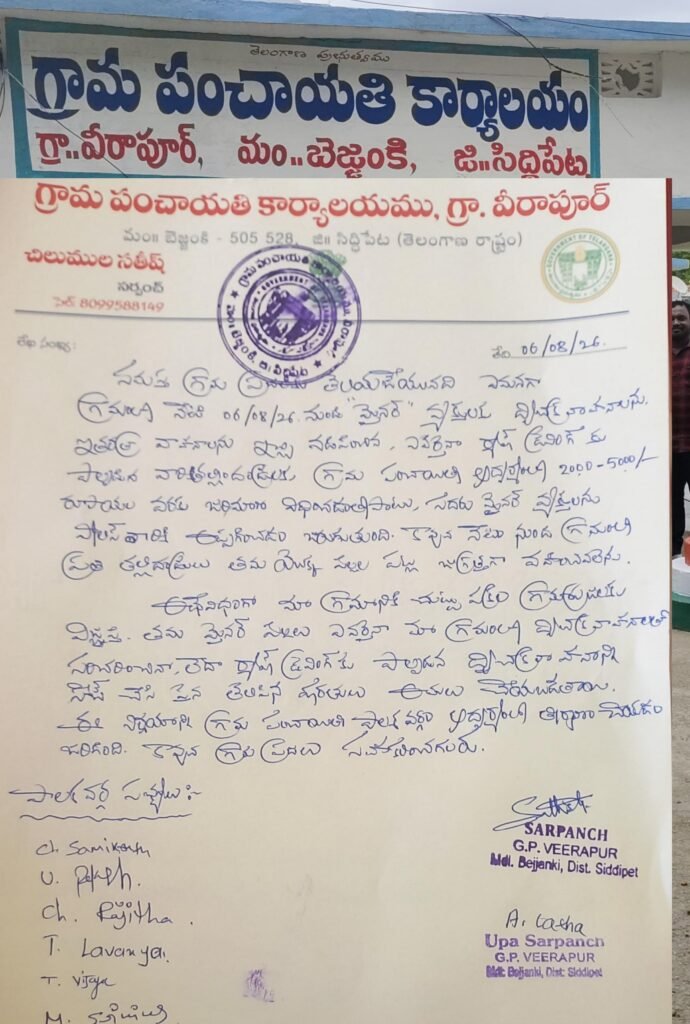 తెలంగాణ ప్రభుత్వము
గ్రామ పంచాయతి కార్యాలయం
గ్రా..వీరాపూర్, మం..బెజ్జంకి, జి॥సిద్దిపేట
గ్రామ పంచాయతి కార్యాలయము, గ్రా. వీరాపూర్
మం॥ బెజ్జంకి - 505 528, జి॥ సిద్ధిపేట (తెలంగాణ రాష్ట్రం)
చిలుముల సతీష్
సర్పంచ్
సెల్: 8099588149
లేఖ సంఖ్య:
తేది. 06/08/26.
సమస్త గ్రామ ప్రజలకు తెలియజేయునది ఏమనగా
గ్రామంలో నేటి 06/08/26. నుండి "మైనర్" వ్యక్తులకు ద్విచక్ర వాహనాలను,
ఇతరత్రా వాహనాలను ఇచ్చి నడిపించిన, ఎవరైనా ర్యాష్ డ్రైవింగ్ కు
పాల్పడిన వారి తల్లిదండ్రులకు గ్రామ పంచాయితీ ఆధ్వర్యంలో 2000-5000/-
రూపాయల వరకు జరిమానా విధించడంతోపాటు, సదరు మైనర్ వ్యక్తులను
పోలీస్ వారికి అప్పగించడం జరుగుతుంది. కావున నేటి నుండి గ్రామంలో
ప్రతి తల్లిదండ్రులు తమ యొక్క పిల్లల పట్ల జాగ్రత్తగా వహించవలెను.
అదేవిధంగా మా గ్రామానికి చుట్టు ప్రక్కల గ్రామస్తులకు
విజ్ఞప్తి. తమ మైనర్ పిల్లలు ఎవరైనా మా గ్రామంలో ద్విచక్ర వాహనాలతో
సంచరించినా, లేదా ర్యాష్ డ్రైవింగ్ కు పాల్పడిన ద్విచక్ర వాహనాన్ని
సీజ్ చేసి పైన తెలిపిన షరతులు అమలు చేయబడతాయి.
ఈ నిర్ణయాన్ని గ్రామ పంచాయితీ పాలకవర్గం ఆధ్వర్యంలో తీర్మానం చేయడం
జరిగింది. కావున గ్రామ ప్రజలు సహకరించగలరు.
పాలకవర్గ సభ్యులు :-
ch. Samikanth
U.
Ch. Rajitha.
T. Lavanya.
T. Vijaya
M.
SARPANCH
G.P. VEERAPUR
Mdl. Bejjanki, Dist. Siddipet
A. Latha
Upa Sarpanch
G.P. VEERAPUR
Mdl: Bejjanki, Dist: Siddipet